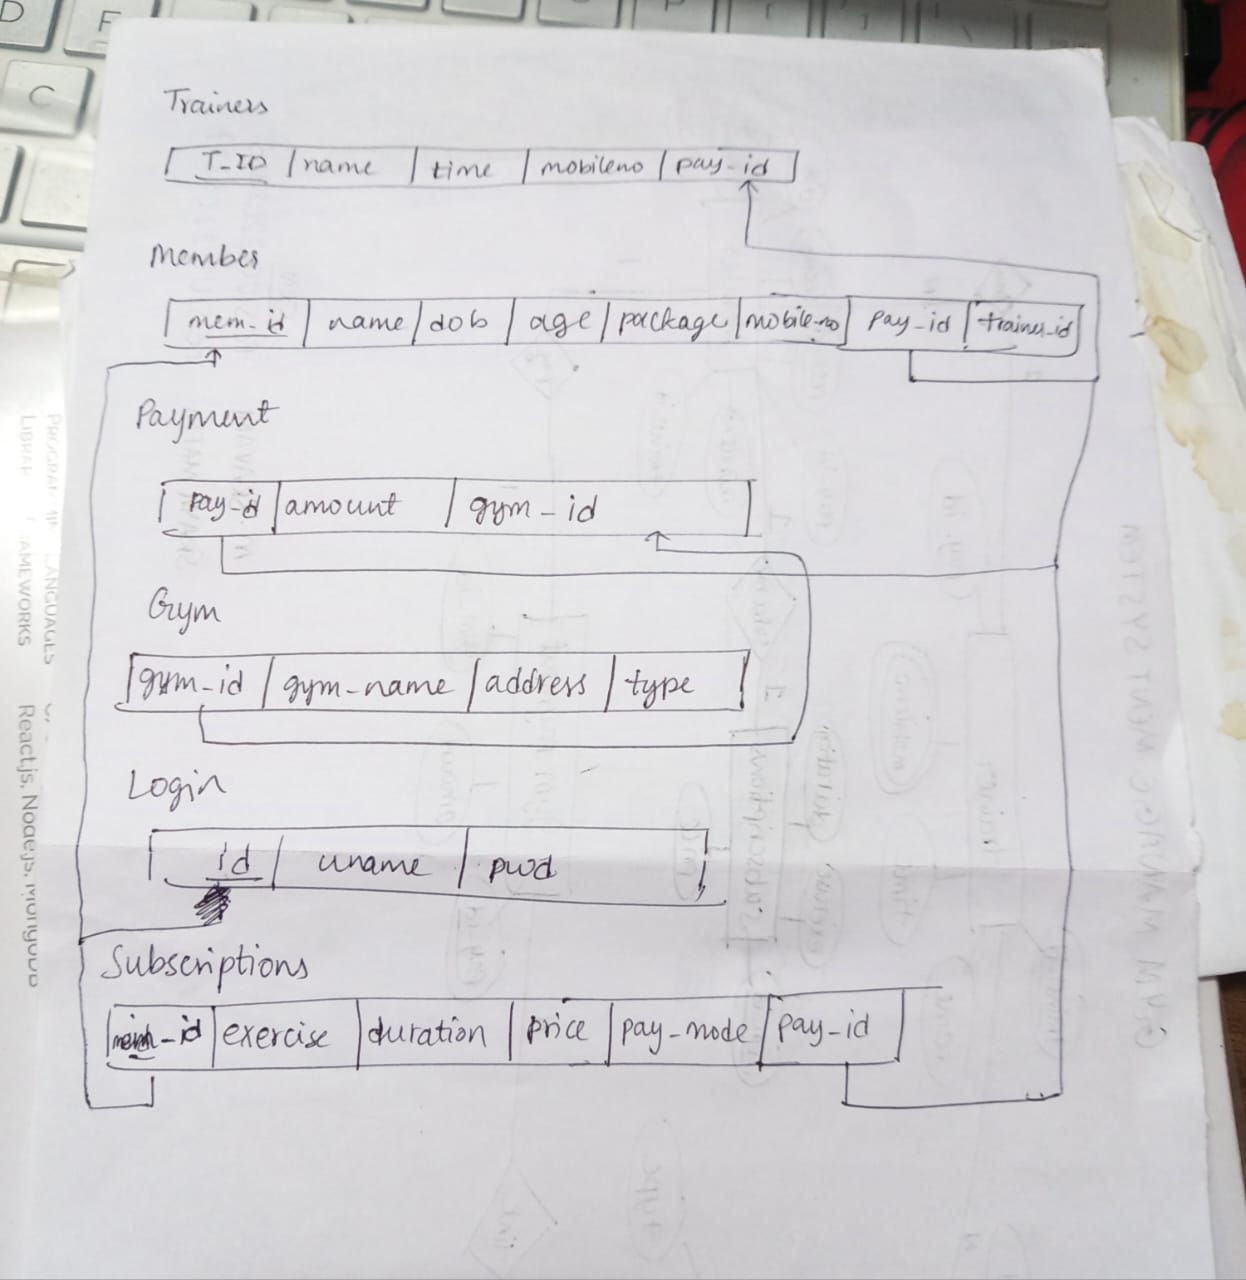 Trainers
T_ID name time mobileno pay_id
Member
mem_id name dob age package mobile_no pay_id trainer_id
Payment
pay_id amount gym_id
Gym
gym_id gym_name address type
Login
id uname pwd
Subscriptions
mem_id exercise duration price pay_mode pay_id
C
PROGRAMMING LANGUAGES
React.js, Node.js,
GYM MANAGEMENT SYSTEM